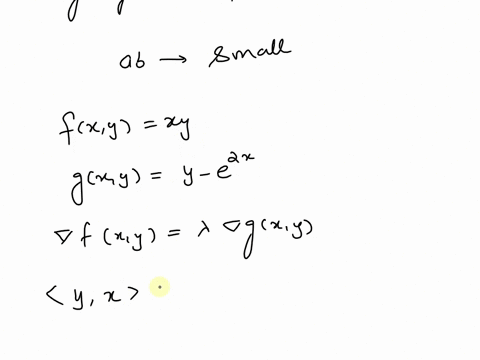 ab → small
f(x,y) = xy
g(x,y) = y - e^{2x}
∇f(x,y) = λ ∇g(x,y)
< y, x >